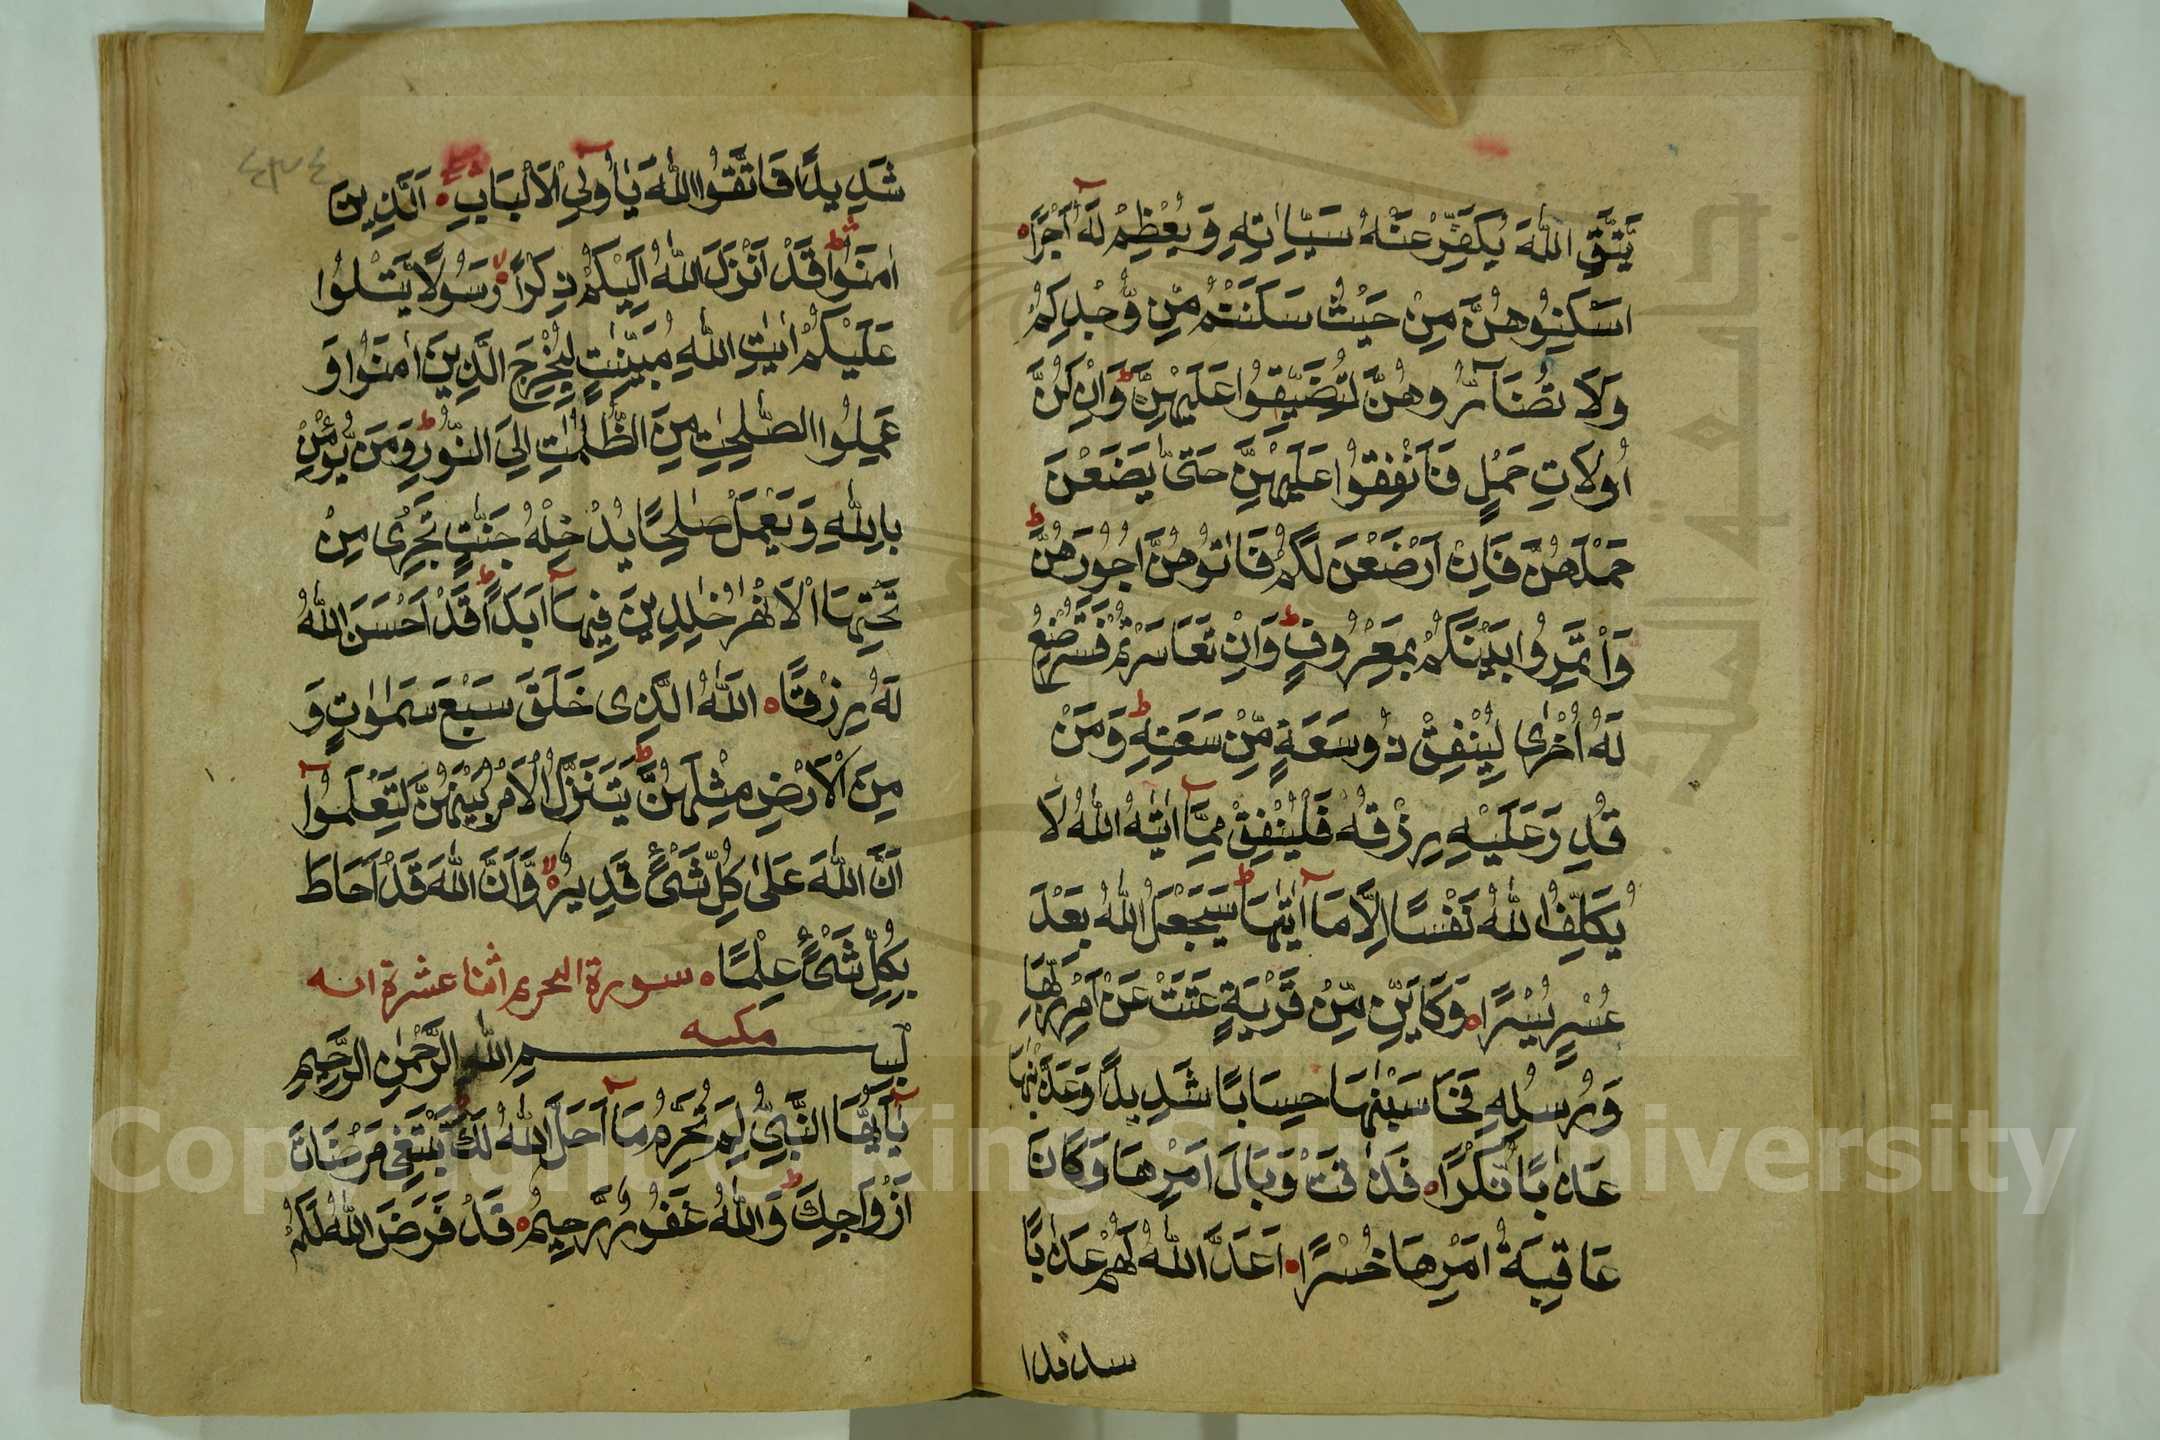 يَّتَّقِ اللّٰهَ يُكَفِّرْ عَنْهُ سَيِّاٰتِهٖ وَيُعْظِمْ لَهٗٓ اَجْرًا
اَسْكِنُوْهُنَّ مِنْ حَيْثُ سَكَنْتُمْ مِّنْ وُّجْدِكُمْ
وَلَا تُضَآرُّوْهُنَّ لِتُضَيِّقُوْا عَلَيْهِنَّ ط وَاِنْ كُنَّ
اُولَاتِ حَمْلٍ فَاَنْفِقُوْا عَلَيْهِنَّ حَتّٰى يَضَعْنَ
حَمْلَهُنَّ فَاِنْ اَرْضَعْنَ لَكُمْ فَاٰتُوْهُنَّ اُجُوْرَهُنَّ ط
وَاْتَمِرُوْا بَيْنَكُمْ بِمَعْرُوْفٍ ط وَاِنْ تَعَاسَرْتُمْ فَسَتُرْضِعُ
لَهٗ اُخْرٰى لِيُنْفِقْ ذُوْ سَعَةٍ مِّنْ سَعَتِهٖ ط وَمَنْ
قُدِرَ عَلَيْهِ رِزْقُهٗ فَلْيُنْفِقْ مِمَّآ اٰتٰىهُ اللّٰهُ لَا
يُكَلِّفُ اللّٰهُ نَفْسًا اِلَّا مَآ اٰتٰىهَا ط سَيَجْعَلُ اللّٰهُ بَعْدَ
عُسْرٍ يُّسْرًا وَكَاَيِّنْ مِّنْ قَرْيَةٍ عَتَتْ عَنْ اَمْرِ رَبِّهَا
وَرُسُلِهٖ فَحَاسَبْنٰهَا حِسَابًا شَدِيْدًا وَعَذَّبْنٰهَا
عَذَابًا نُّكْرًا فَذَاقَتْ وَبَالَ اَمْرِهَا وَكَانَ
عَاقِبَةُ اَمْرِهَا خُسْرًا اَعَدَّ اللّٰهُ لَهُمْ عَذَابًا
شديدا
شَدِيْدًا فَاتَّقُوا اللّٰهَ يٰٓاُولِي الْاَلْبَابِ الَّذِيْنَ
اٰمَنُوْا ط قَدْ اَنْزَلَ اللّٰهُ اِلَيْكُمْ ذِكْرًا لا رَسُوْلًا يَّتْلُوْا
عَلَيْكُمْ اٰيٰتِ اللّٰهِ مُبَيِّنٰتٍ لِّيُخْرِجَ الَّذِيْنَ اٰمَنُوْا وَ
عَمِلُوا الصّٰلِحٰتِ مِنَ الظُّلُمٰتِ اِلَى النُّوْرِ ط وَمَنْ يُّؤْمِنْ
بِاللّٰهِ وَيَعْمَلْ صَالِحًا يُدْخِلْهُ جَنّٰتٍ تَجْرِيْ مِنْ
تَحْتِهَا الْاَنْهٰرُ خٰلِدِيْنَ فِيْهَآ اَبَدًا ط قَدْ اَحْسَنَ اللّٰهُ
لَهٗ رِزْقًا اَللّٰهُ الَّذِيْ خَلَقَ سَبْعَ سَمٰوٰتٍ وَ
مِنَ الْاَرْضِ مِثْلَهُنَّ ط يَتَنَزَّلُ الْاَمْرُ بَيْنَهُنَّ لِتَعْلَمُوْٓا
اَنَّ اللّٰهَ عَلٰى كُلِّ شَيْءٍ قَدِيْرٌ لا وَّاَنَّ اللّٰهَ قَدْ اَحَاطَ
بِكُلِّ شَيْءٍ عِلْمًا سورة التحريم اثنا عشرة آية
مكية
بِسْمِ اللّٰهِ الرَّحْمٰنِ الرَّحِيْمِ
يٰٓاَيُّهَا النَّبِيُّ لِمَ تُحَرِّمُ مَآ اَحَلَّ اللّٰهُ لَكَ تَبْتَغِيْ مَرْضَاتَ
اَزْوَاجِكَ ط وَاللّٰهُ غَفُوْرٌ رَّحِيْمٌ قَدْ فَرَضَ اللّٰهُ لَكُمْ
Copyright © King Saud University